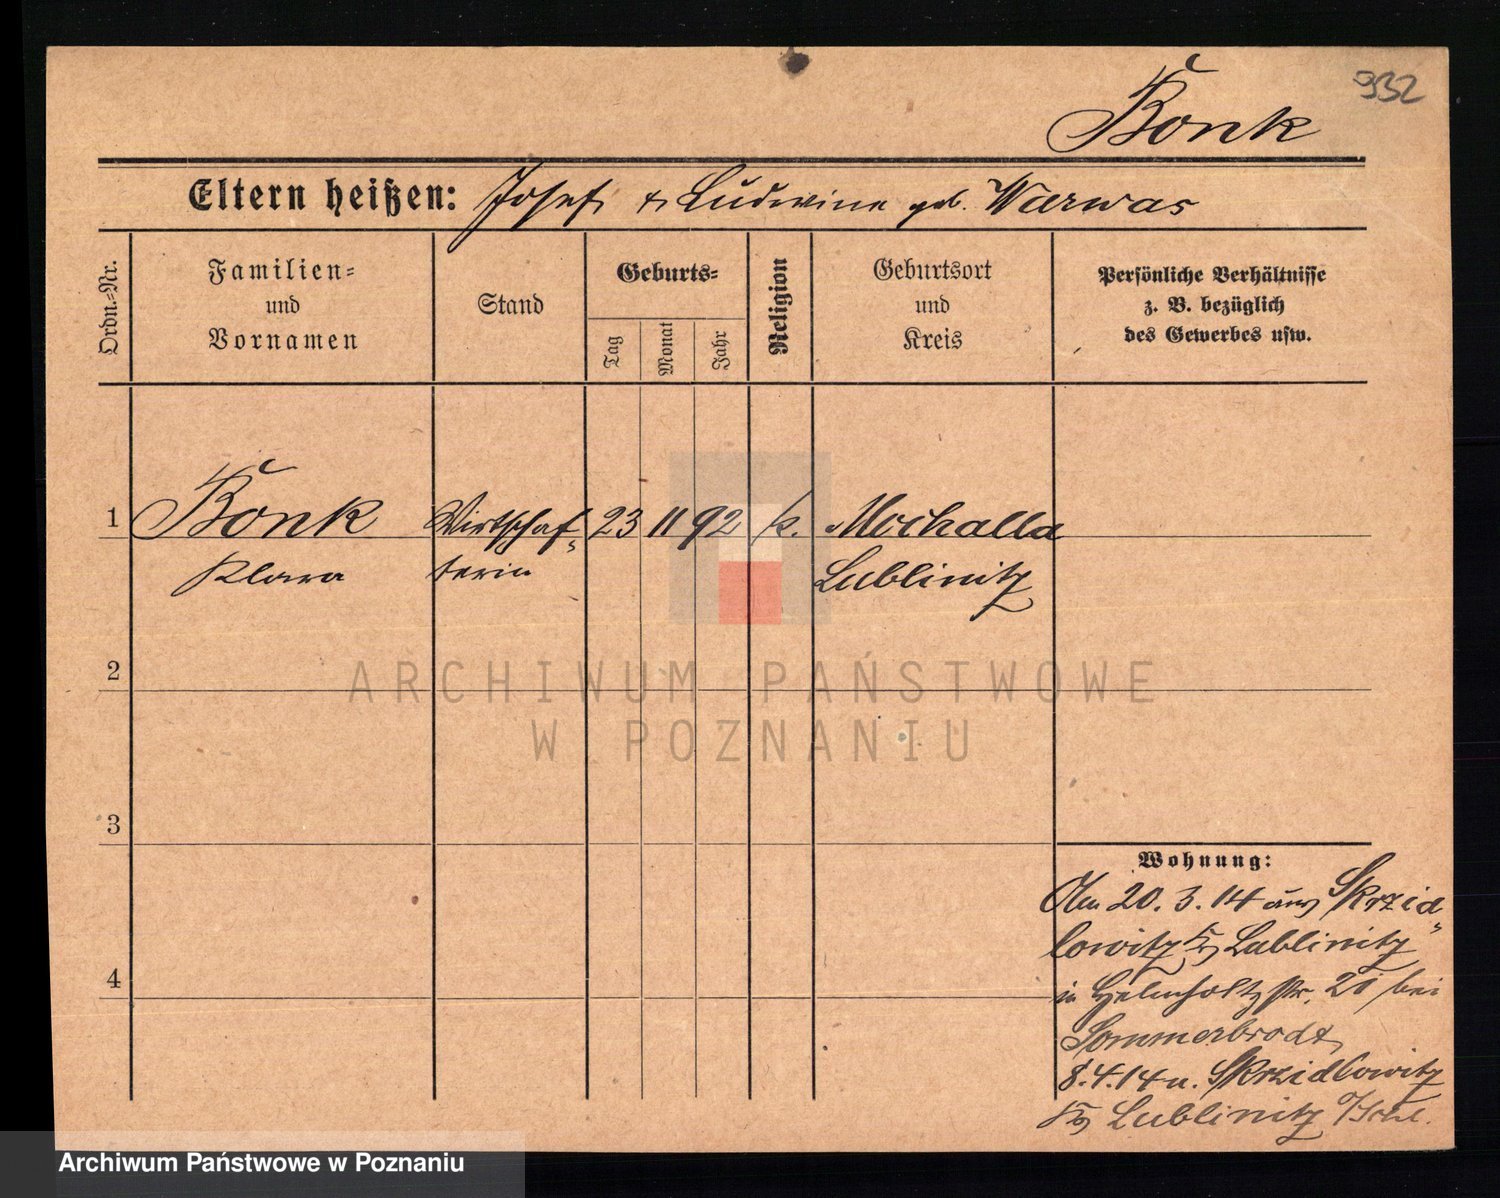 932
Bonk
Eltern heißen: Josef u. Ludwina geb. Warwas
Ordn.-Nr.
Familien-
und
Vornamen
Stand
Geburts-
Tag
Monat
Jahr
Religion
Geburtsort
und
Kreis
Persönliche Verhältnisse
z. B. bezüglich
des Gewerbes usw.
1 Bonk Wirtschaf- 23 11 92 k. Mochalla
Klara terin Lublinitz
2
3
4
Wohnung:
Am 20. 3. 14 aus Skrzid-
lowitz Krs Lublinitz
in Helmholtzstr. 21 bei
Sommerbrodt
8.4.14 n. Skrzidlowitz
Krs Lublinitz
ARCHIWUM PAŃSTWOWE
W POZNANIU
Archiwum Państwowe w Poznaniu